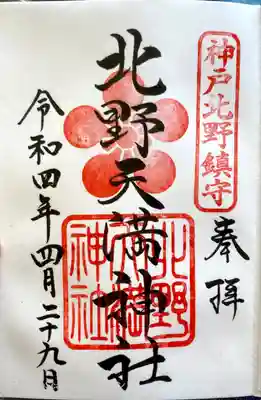 神戸北野鎮守
奉拝
北野天満神社
北野
天満
神社
令和四年四月二十九日